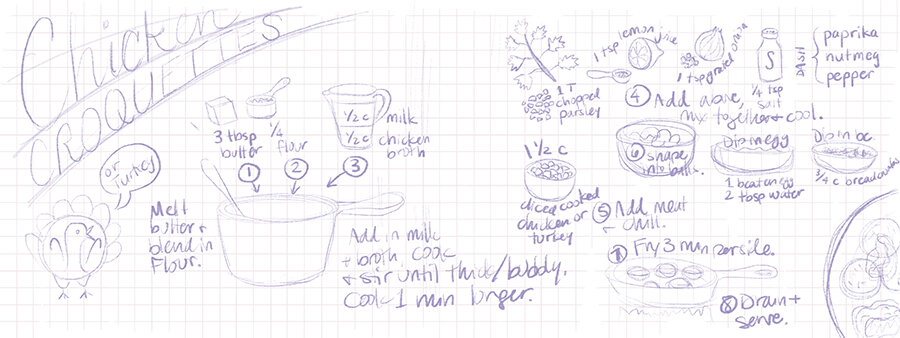 Chicken
CROQUETTES
or
Turkey
3 tbsp
butter
1/4
flour
1/2 c
1/2 c
milk
chicken
broth
1
2
3
Melt
butter +
blend in
flour.
Add in milk
+ broth cook
+ stir until thick/bubbly.
Cook 1 min longer.
1 T
chopped
parsley
1 tsp lemon juice
1 tsp grated onion
S
1/4 tsp
salt
DASH
paprika
nutmeg
pepper
4 Add above,
mix together + cool.
1 1/2 c
diced cooked
chicken or
turkey
5 Add meat
+ chill.
6 shape
into balls.
Dip in egg
1 beaten egg
2 tbsp water
Dip in bc
3/4 c breadcrumbs
7 Fry 3 min per side.
8 Drain +
serve.